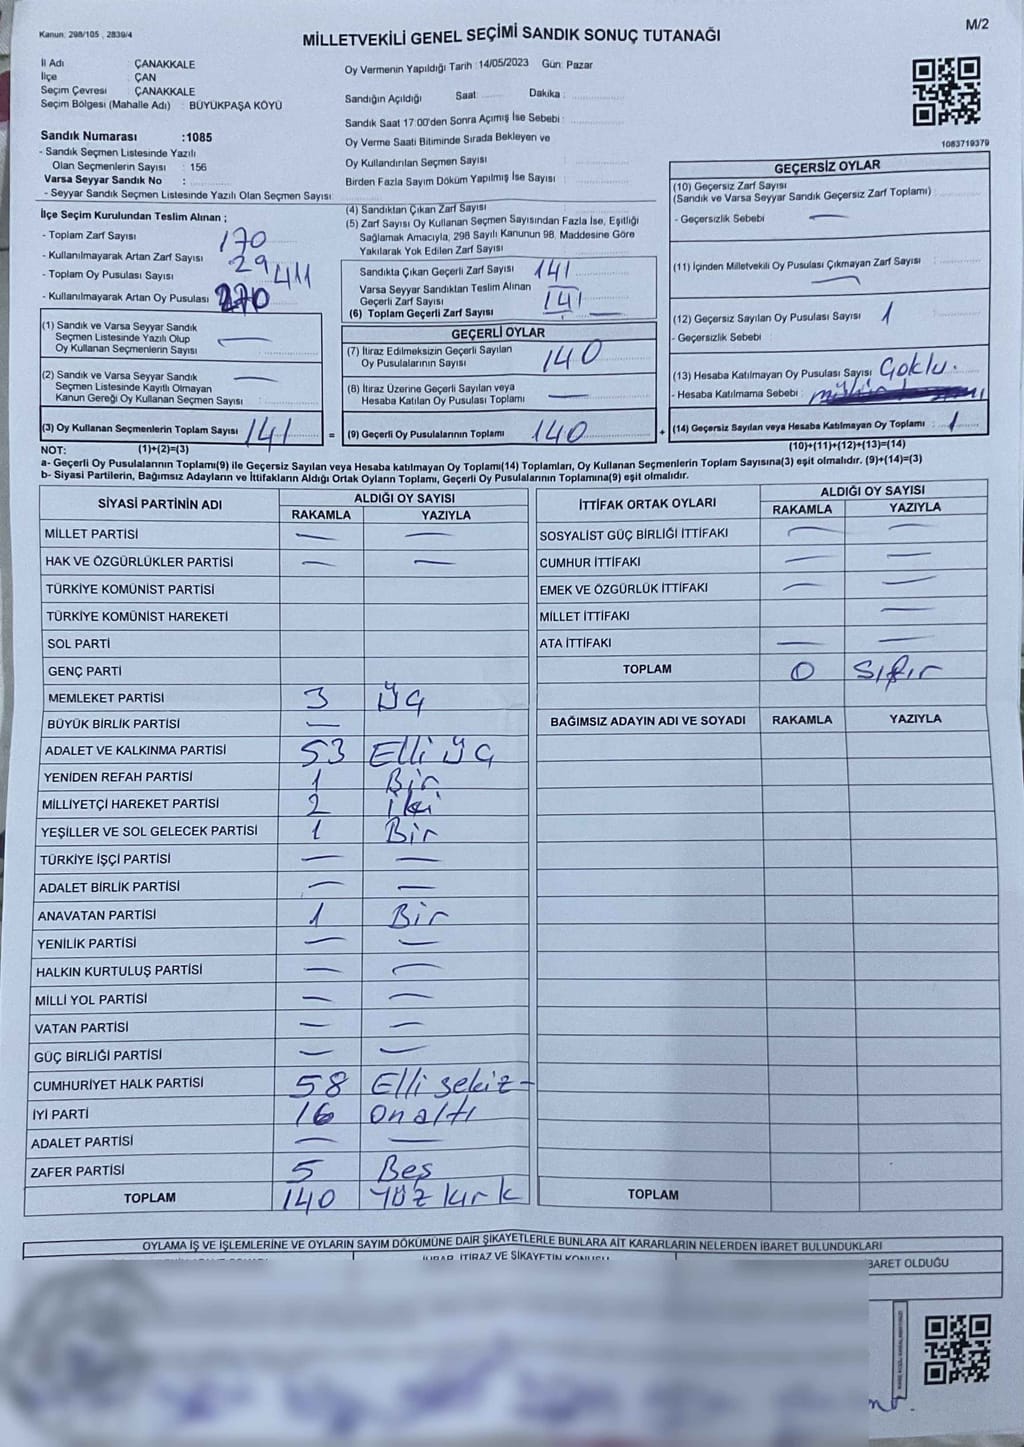 Kanun: 298/105 , 2839/4
M/2
MİLLETVEKİLİ GENEL SEÇİMİ SANDIK SONUÇ TUTANAĞI
İl Adı ÇANAKKALE
İlçe ÇAN
Seçim Çevresi ÇANAKKALE
Seçim Bölgesi (Mahalle Adı) : BÜYÜKPAŞA KÖYÜ
Sandık Numarası :1085
- Sandık Seçmen Listesinde Yazılı
Olan Seçmenlerin Sayısı : 156
Varsa Seyyar Sandık No :
- Seyyar Sandık Seçmen Listesinde Yazılı Olan Seçmen Sayısı
Oy Vermenin Yapıldığı Tarih :14/05/2023 Gün: Pazar
Sandığın Açıldığı Saat: Dakika :
Sandık Saat 17:00'den Sonra Açımış İse Sebebi :
Oy Verme Saati Bitiminde Sırada Bekleyen ve
Oy Kullandırılan Seçmen Sayısı :
Birden Fazla Sayım Döküm Yapılmış İse Sayısı :
1083719379
İlçe Seçim Kurulundan Teslim Alınan ;
- Toplam Zarf Sayısı 170
- Kullanılmayarak Artan Zarf Sayısı 29
- Toplam Oy Pusulası Sayısı 411
- Kullanılmayarak Artan Oy Pusulası 270
(1) Sandık ve Varsa Seyyar Sandık
Seçmen Listesinde Yazılı Olup
Oy Kullanan Seçmenlerin Sayısı : —
(2) Sandık ve Varsa Seyyar Sandık
Seçmen Listesinde Kayıtlı Olmayan
Kanun Gereği Oy Kullanan Seçmen Sayısı : —
(3) Oy Kullanan Seçmenlerin Toplam Sayısı 141
(4) Sandıktan Çıkan Zarf Sayısı :
(5) Zarf Sayısı Oy Kullanan Seçmen Sayısından Fazla İse, Eşitliği
Sağlamak Amacıyla, 298 Sayılı Kanunun 98. Maddesine Göre
Yakılarak Yok Edilen Zarf Sayısı
Sandıkta Çıkan Geçerli Zarf Sayısı 141
Varsa Seyyar Sandıktan Teslim Alınan
Geçerli Zarf Sayısı
(6) Toplam Geçerli Zarf Sayısı : 141
GEÇERLİ OYLAR
(7) İtiraz Edilmeksizin Geçerli Sayılan
Oy Pusulalarının Sayısı 140
(8) İtiraz Üzerine Geçerli Sayılan veya
Hesaba Katılan Oy Pusulası Toplamı —
= (9) Geçerli Oy Pusulalarının Toplamı 140 +
GEÇERSİZ OYLAR
(10) Geçersiz Zarf Sayısı
(Sandık ve Varsa Seyyar Sandık Geçersiz Zarf Toplamı) :
- Geçersizlik Sebebi —
(11) İçinden Milletvekili Oy Pusulası Çıkmayan Zarf Sayısı :
—
(12) Geçersiz Sayılan Oy Pusulası Sayısı : 1
- Geçersizlik Sebebi
(13) Hesaba Katılmayan Oy Pusulası Sayısı
- Hesaba Katılmama Sebebi :
(14) Geçersiz Sayılan veya Hesaba Katılmayan Oy Toplamı : 1
NOT: (1)+(2)=(3)
(10)+(11)+(12)+(13)=(14)
a- Geçerli Oy Pusulalarının Toplamı(9) ile Geçersiz Sayılan veya Hesaba katılmayan Oy Toplamı(14) Toplamları, Oy Kullanan Seçmenlerin Toplam Sayısına(3) eşit olmalıdır. (9)+(14)=(3)
b- Siyasi Partilerin, Bağımsız Adayların ve İttifakların Aldığı Ortak Oyların Toplamı, Geçerli Oy Pusulalarının Toplamına(9) eşit olmalıdır.
SİYASİ PARTİNİN ADI ALDIĞI OY SAYISI
RAKAMLA YAZIYLA
MİLLET PARTİSİ — —
HAK VE ÖZGÜRLÜKLER PARTİSİ — —
TÜRKİYE KOMÜNİST PARTİSİ
TÜRKİYE KOMÜNİST HAREKETİ
SOL PARTİ
GENÇ PARTİ
MEMLEKET PARTİSİ 3 Üç
BÜYÜK BİRLİK PARTİSİ —
ADALET VE KALKINMA PARTİSİ 53 Elli üç
YENİDEN REFAH PARTİSİ 1 Bir
MİLLİYETÇİ HAREKET PARTİSİ 2 iki
YEŞİLLER VE SOL GELECEK PARTİSİ 1 Bir
TÜRKİYE İŞÇİ PARTİSİ — —
ADALET BİRLİK PARTİSİ — —
ANAVATAN PARTİSİ 1 Bir
YENİLİK PARTİSİ — —
HALKIN KURTULUŞ PARTİSİ — —
MİLLİ YOL PARTİSİ — —
VATAN PARTİSİ — —
GÜÇ BİRLİĞİ PARTİSİ — —
CUMHURİYET HALK PARTİSİ 58 Elli sekiz -
İYİ PARTİ 16 on altı
ADALET PARTİSİ — —
ZAFER PARTİSİ 5 Beş
TOPLAM 140 Yüz kırk
İTTİFAK ORTAK OYLARI ALDIĞI OY SAYISI
RAKAMLA YAZIYLA
SOSYALİST GÜÇ BİRLİĞİ İTTİFAKI — —
CUMHUR İTTİFAKI — —
EMEK VE ÖZGÜRLÜK İTTİFAKI — —
MİLLET İTTİFAKI —
ATA İTTİFAKI — —
TOPLAM 0 Sıfır
BAĞIMSIZ ADAYIN ADI VE SOYADI RAKAMLA YAZIYLA
TOPLAM
OYLAMA İŞ VE İŞLEMLERİNE VE OYLARIN SAYIM DÖKÜMÜNE DAİR ŞİKAYETLERLE BUNLARA AİT KARARLARIN NELERDEN İBARET BULUNDUKLARI
İTİRAZ VE ŞİKAYETİN KONUSU
BARET OLDUĞU